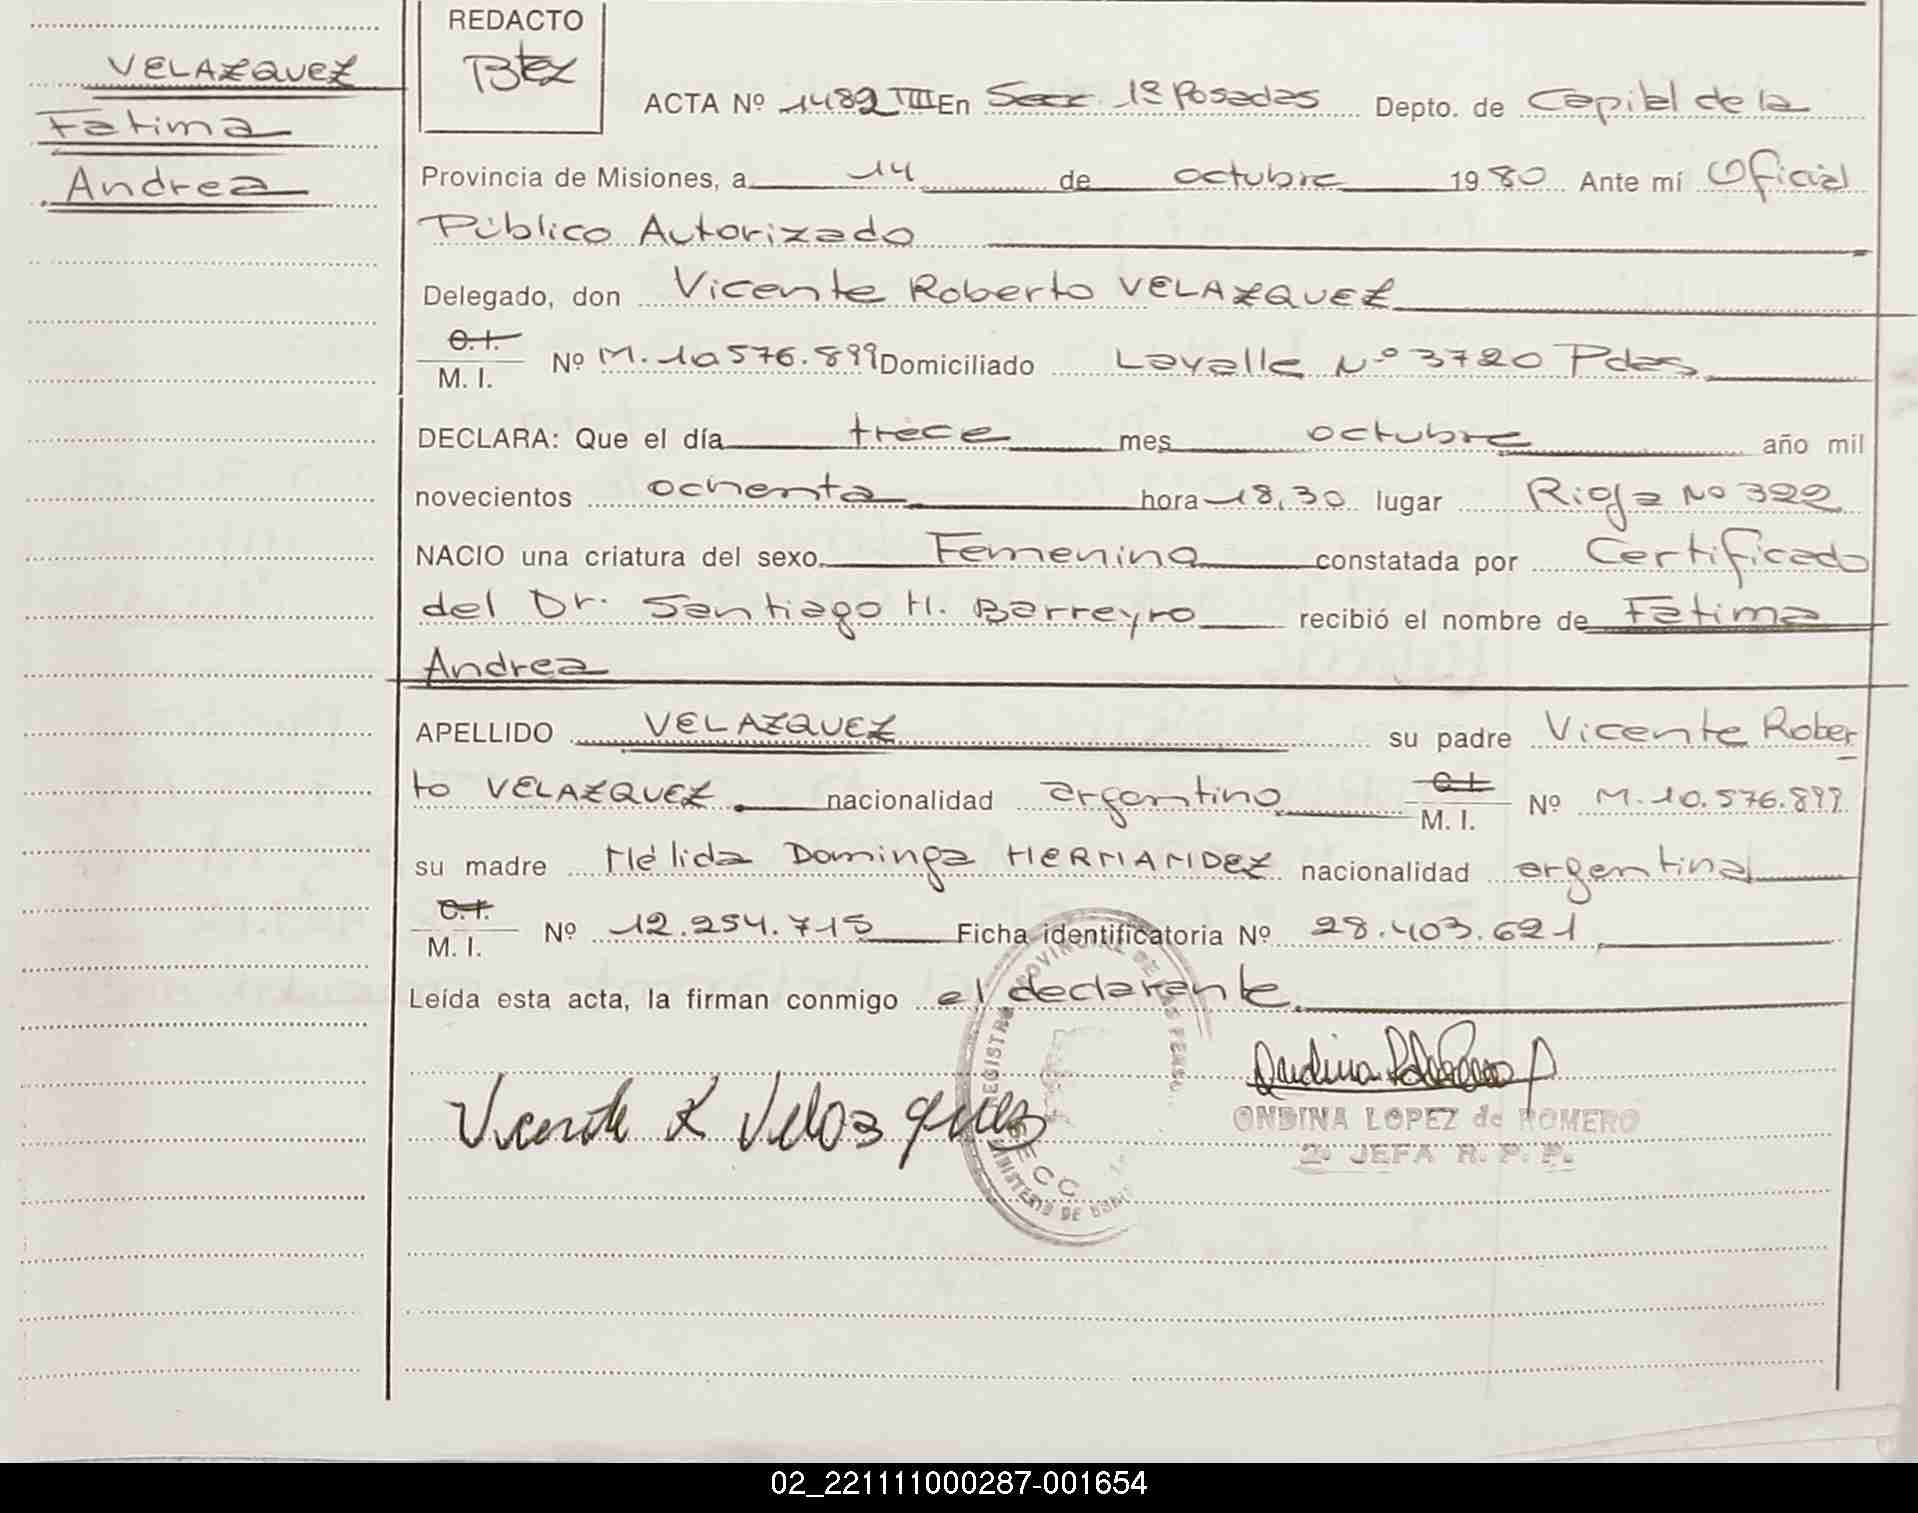 VELAZQUEZ
Fatima
Andrea
REDACTO
Btez
ACTA Nº 1482 TIII En Secc. 1º Posadas Depto. de Capital de la
Provincia de Misiones, a 14 de octubre 1980 Ante mí Oficial
Público Autorizado
Delegado, don Vicente Roberto VELAZQUEZ
C.I.
M. I. Nº M. 10 576.899 Domiciliado Lavalle Nº 3720 Pdas
DECLARA: Que el día trece mes octubre año mil
novecientos ochenta hora 18,30 lugar Rioja Nº 322
NACIO una criatura del sexo Femenino constatada por Certificado
del Dr. Santiago H. Barreyro recibió el nombre de Fatima
Andrea
APELLIDO VELAZQUEZ su padre Vicente Rober
to VELAZQUEZ nacionalidad argentino C.I. M. I. Nº M. 10.576.899
su madre Nélida Dominga HERNANDEZ nacionalidad argentina
C.I.
M. I. Nº 12.254.715 Ficha identificatoria Nº 28.403.621
Leída esta acta, la firman conmigo el declarante
Vicente R Velazquez
ONDINA LOPEZ de ROMERO
2º JEFA R. P. P.
02_221111000287-001654